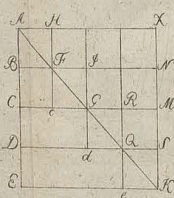 A H X
B F I N
C c G R M
D d Q S
E e K